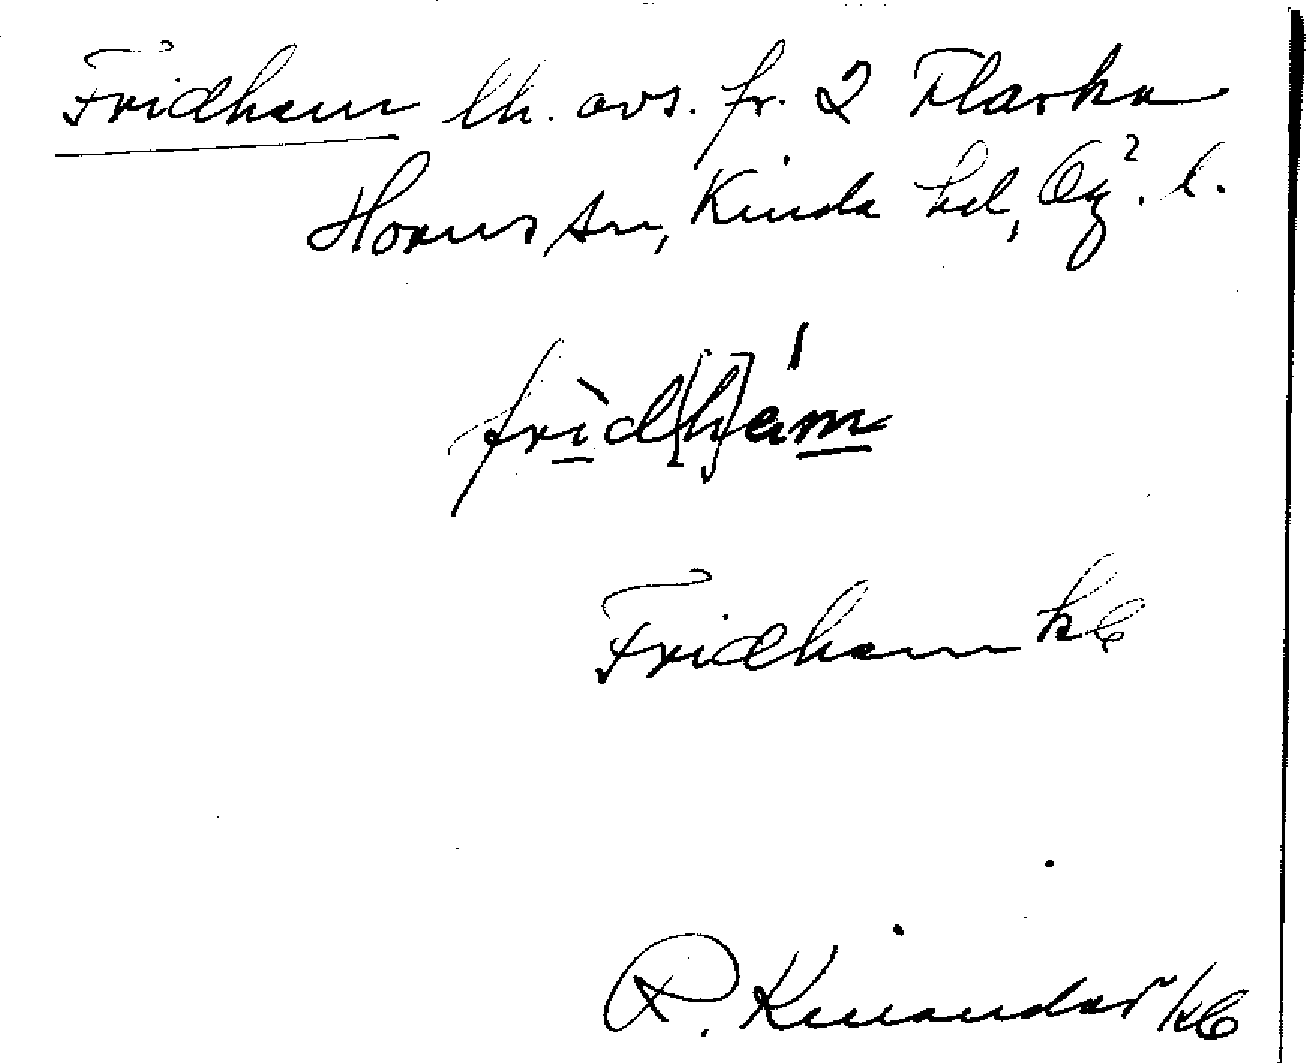 Fridhem lh. avs. fr. 2 Flaska
Horns sn, Kinda hd, Ög. l.
frìd[h]ém
Fridhem kb
R. Kinander